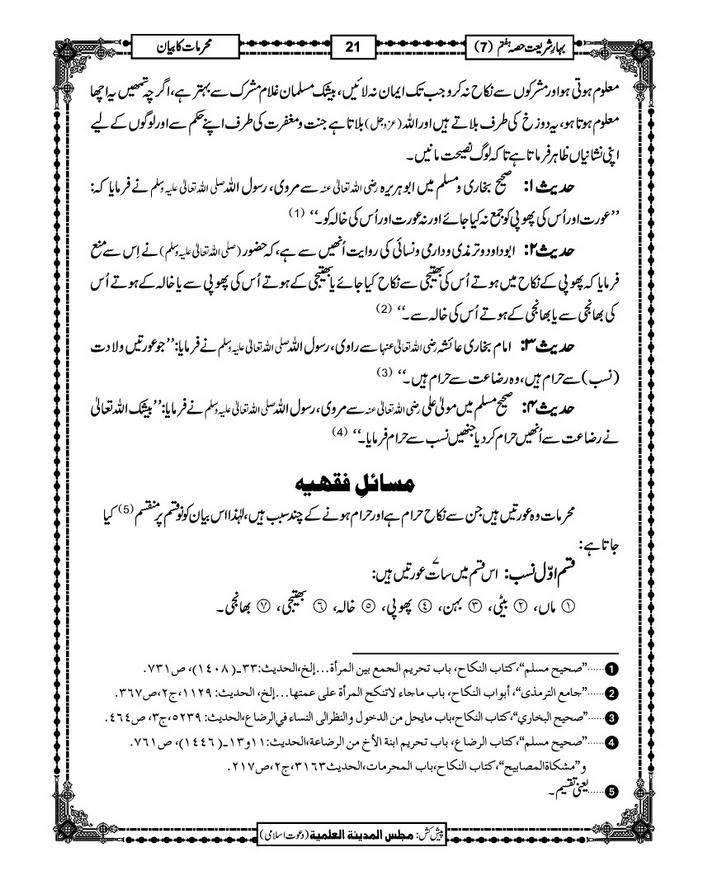 بہار شریعت حصہ ہفتم (7)
21
محرمات کا بیان
معلوم ہوتی ہو اور مشرکوں سے نکاح نہ کرو جب تک ایمان نہ لائیں، بیشک مسلمان غلام مشرک سے بہتر ہے، اگرچہ تمھیں یہ اچھا
معلوم ہوتا ہو، یہ دوزخ کی طرف بلاتے ہیں اور اللہ (عزوجل) بلاتا ہے جنت و مغفرت کی طرف اپنے حکم سے اور لوگوں کے لیے
اپنی نشانیاں ظاہر فرماتا ہے تاکہ لوگ نصیحت مانیں۔
حدیث ۱: صحیح بخاری و مسلم میں ابوہریرہ رضی اللہ تعالیٰ عنہ سے مروی، رسول اللہ صلی اللہ تعالیٰ علیہ وسلم نے فرمایا کہ:
’’عورت اور اُس کی پھوپی کو جمع نہ کیا جائے اور نہ عورت اور اُس کی خالہ کو۔‘‘ (1)
حدیث ۲: ابوداود و ترمذی و دارمی و نسائی کی روایت اُنھیں سے ہے، کہ حضور (صلی اللہ تعالیٰ علیہ وسلم) نے اِس سے منع
فرمایا کہ پھوپی کے نکاح میں ہوتے اُس کی بھتیجی سے نکاح کیا جائے یا بھتیجی کے ہوتے اُس کی پھوپی سے یا خالہ کے ہوتے اُس
کی بھانجی سے یا بھانجی کے ہوتے اُس کی خالہ سے۔‘‘ (2)
حدیث ۳: امام بخاری عائشہ رضی اللہ تعالیٰ عنہا سے راوی، رسول اللہ صلی اللہ تعالیٰ علیہ وسلم نے فرمایا: ’’جو عورتیں ولادت
(نسب) سے حرام ہیں، وہ رضاعت سے حرام ہیں۔‘‘ (3)
حدیث ۴: صحیح مسلم میں مولیٰ علی رضی اللہ تعالیٰ عنہ سے مروی، رسول اللہ صلی اللہ تعالیٰ علیہ وسلم نے فرمایا: ’’بیشک اللہ تعالیٰ
نے رضاعت سے اُنھیں حرام کر دیا جنھیں نسب سے حرام فرمایا۔‘‘ (4)
مسائلِ فقہیہ
محرمات وہ عورتیں ہیں جن سے نکاح حرام ہے اور حرام ہونے کے چند سبب ہیں، لہٰذا اس بیان کو نو قسم پر منقسم (5) کیا
جاتا ہے:
قسم اوّل نسب: اس قسم میں سات عورتیں ہیں:
① ماں، ② بیٹی، ③ بہن، ④ پھوپی، ⑤ خالہ، ⑥ بھتیجی، ⑦ بھانجی۔
❶......”صحیح مسلم“، کتاب النکاح، باب تحریم الجمع بین المرأة...إلخ، الحدیث: ۳۳۔(۱۴۰۸)، ص۷۳۱.
❷......”جامع الترمذی“، أبواب النکاح، باب ماجاء لاتنکح المرأة علی عمتها...إلخ، الحدیث: ۱۱۲۹، ج۲، ص۳۶۷.
❸......”صحیح البخاری“، کتاب النکاح، باب مایحل من الدخول والنظر الی النساء فی الرضاع، الحدیث: ۵۲۳۹، ج۳، ص۴۶۴.
❹......”صحیح مسلم“، کتاب الرضاع، باب تحریم ابنة الأخ من الرضاعة، الحدیث: ۱۱و۱۳۔(۱۴۴۶)، ص۷۶۱.
و”مشکاة المصابیح“، کتاب النکاح، باب المحرمات، الحدیث۳۱۶۳، ج۲، ص۲۱۷.
❺......یعنی تقسیم۔
پیش کش: مجلس المدینة العلمیة (دعوت اسلامی)